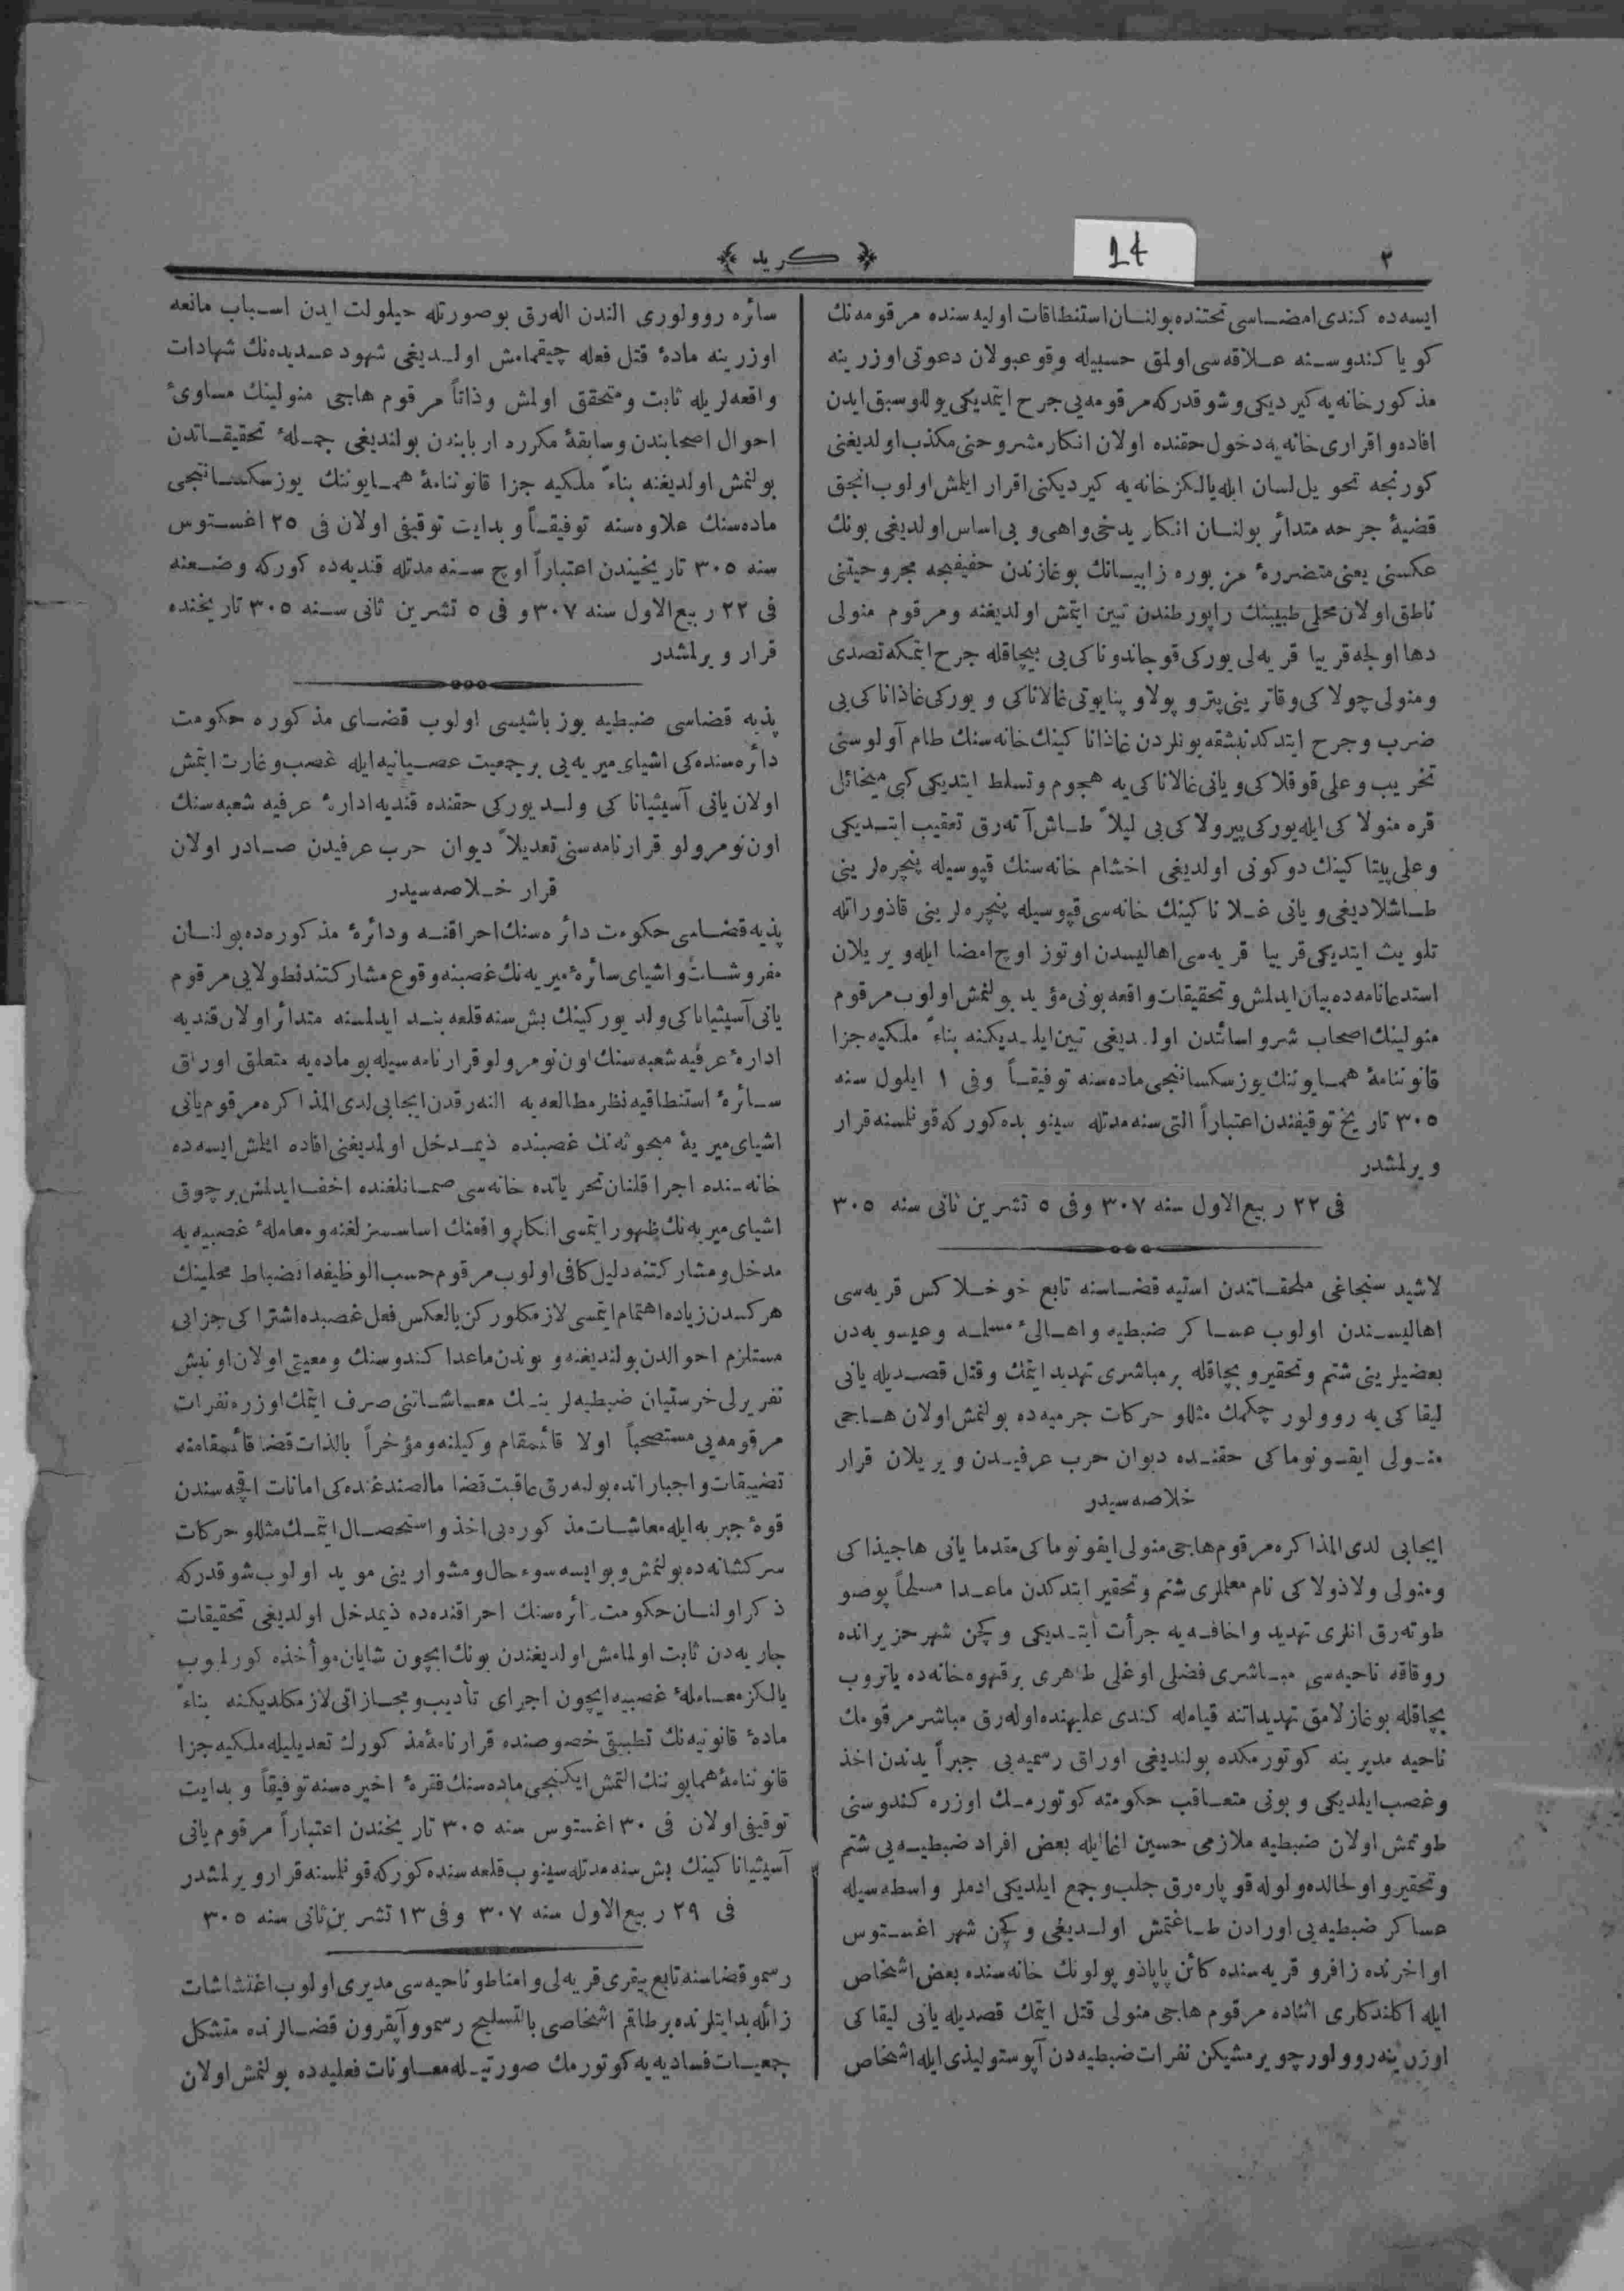 ٣
﴿ كريد ﴾
14
ايسه‌ده كندى امضاسى تحتنده بولنان استنطاقات اوليه سنده مرقومه‌نك
كويا كندوسنه علاقه‌سى اولمق حسبيله وقوعبولان دعوتى اوزرينه
مذكور خانه‌يه كيرديكى و شو قدركه مرقومه‌يى جرح ايتمديكى يوللو سبق ايدن
افاده و اقرارى خانه‌يه دخول حقنده اولان انكار مشروحنى مكذب اولديغنى
كورنجه تحويل لسان ايله يالكز خانه‌يه كيرديكنى اقرار ايلمش اولوب انجق
قضيهٔ جرحه متدائر بولنان انكاريدخى واهى و بى اساس اولديغى بونك
عكسنى يعنى متضررهٔ مزبوره زابيانك بوغازندن خفيفجه مجروحيتنى
ناطق اولان محلى طبيبنك راپورطندن تبين ايتمش اولديغنه و مرقوم منولى
دها اولجه قريبا قريه‌لى يوركى قوجاندوناكى‌يى بيچاقله جرح ايتمكه تصدى
و منولى چولاكى و قاترينى پترو پولاو پنايوتى غالاناكى و يوركى غاذاناكى‌يى
ضرب و جرح ايتدكدنبشقه بونلردن غاذاناكينك خانه‌سنك طام آولوسنى
تخريب و على قوقلاكى و يانى غالاناكى‌يه هجوم و تسلط ايتديكى كبى ميخائل
قره منولاكى ايله يوركى پيرولاكى‌يى ليلاً طاش آته‌رق تعقيب ايتديكى
و على پيتاكينك دوكونى اولديغى اخشام خانه‌سنك قپوسيله پنچره‌لرينى
طاشلاديغى و يانى غلاناكينك خانه‌سى قپوسيله پنچره‌لرينى قاذوراتله
تلويث ايتديكى قريبا قريه‌سى اهاليسندن اوتوز اوچ امضا ايله ويريلان
استدعانامه‌ده بيان ايدلمش و تحقيقات واقعه بونى مؤيد بولنمش اولوب مرقوم
منولينك اصحاب شرو اسائتدن اولديغى تبين ايلديكنه بناءً ملكيه جزا
قانوننامهٔ همايوننك يوز سكساننجى ماده‌سنه توفيقاً وفى ١ ايلول سنه
٣٠٥ تاريخ توقيفندن اعتباراً التى سنه مدتله سينوبده كوركه قونلسنه قرار
ويرلمشدر
فى ٢٢ ربيع‌الاول سنه ٣٠٧ وفى ٥ تشرين ثانى سنه ٣٠٥
لاشيد سنجاغى ملحقاتندن استيه قضاسنه تابع خوخلاكس قريه‌سى
اهاليسندن اولوب عساكر ضبطيه و اهالئ مسلمه و عيسويه‌دن
بعضيلرينى شتم و تحقير و بچاقله بر مباشرى تهديد ايتمك و قتل قصديله يانى
ليقاكى‌يه روولور چكمك مثللو حركات جرميه‌ده بولنمش اولان هاجى
منولى ايقونوماكى حقنده ديوان حرب عرفيدن ويريلان قرار
خلاصه‌سيدر
ايجابى لدى المذاكره مرقوم هاجى منولى ايقونوماكى مقدما يانى هاجيذاكى
و منولى ولاذولاكى نام معلملرى شتم و تحقير ايتدكدن ماعدا مسلحاً پوصو
طوته‌رق انلرى تهديد و اخافه‌يه جرأت ايتديكى و كچن شهر حزيرانده
روقاقه ناحيه‌سى مباشرى فضلى اوغلى طاهرى بر قهوه‌خانه‌ده ياتروب
بچاقله بوغازلامق تهديداتنه قيامله كندى عليهنده اوله‌رق مباشر مرقومك
ناحيه مديرينه كوتورمكده بولنديغى اوراق رسميه‌يى جبراً يدندن اخذ
و غصب ايلديكى و بونى متعاقب حكومته كوتورمك اوزره كندوسنى
طوتمش اولان ضبطيه ملازمى حسين اغا ايله بعض افراد ضبطيه‌يى شتم
و تحقير و اولحالده ولوله قوپاره‌رق جلب و جمع ايلديكى ادملر واسطه‌سيله
عساكر ضبطيه‌يى اورادن طاغتمش اولديغى و كچن شهر اغستوس
اواخرنده زافرو قريه‌سنده كائن پاپاذوپولونك خانه‌سنده بعض اشخاص
ايله اكلندكارى اثناده مرقوم هاجى منولى قتل ايتمك قصديله يانى ليقاكى
اوزرينه روولور چويرمشيكن نفرات ضبطيه‌دن آپوستوليذى ايله اشخاص
سائره روولورى الندن اله‌رق بوصورتله حيلولت ايدن اسباب مانعه
اوزرينه مادهٔ قتل فعله چيقمامش اولديغى شهود عديده‌نك شهادات
واقعه‌لريله ثابت و متحقق اولمش و ذاتاً مرقوم هاجى منولينك مساوئ
احوال اصحابندن و سابقهٔ مكرره اربابندن بولنديغى جملهٔ تحقيقاتدن
بولنمش اولديغنه بناءً ملكيه جزا قانوننامهٔ همايوننك يوز سكساننجى
ماده‌سنك علاوه‌سنه توفيقاً و بدايت توقيفى اولان فى ٢٥ اغستوس
سنه ٣٠٥ تاريخيندن اعتباراً اوچ سنه مدتله قنديه‌ده كوركه وضعنه
فى ٢٢ ربيع‌الاول سنه ٣٠٧ و فى ٥ تشرين ثانى سنه ٣٠٥ تاريخنده
قرار ويرلمشدر
پذيه قضاسى ضبطيه يوزباشيسى اولوب قضاى مذكوره حكومت
دائره‌سنده‌كى اشياى ميريه‌يى بر جمعيت عصيانيه ايله غصب و غارت ايتمش
اولان يانى آسيثياناكى ولد يوركى حقنده قنديه ادارهٔ عرفيه شعبه‌سنك
اون نومرولو قرارنامه‌سنى تعديلاً ديوان حرب عرفيدن صادر اولان
قرار خلاصه‌سيدر
پذيه قضاسى حكومت دائره‌سنك احراقنه و دائرهٔ مذكوره‌ده بولنان
مفروشات و اشياى سائرهٔ ميريه‌نك غصبنه وقوع مشاركتندن‌طولايى مرقوم
يانى آسيثياناكى ولد يوركينك بش سنه قلعه‌بند ايدلمسنه متدائر اولان قنديه
ادارهٔ عرفيه شعبه‌سنك اون نومرولو قرارنامه‌سيله بو ماده‌يه متعلق اوراق
سائرهٔ استنطاقيه نظر مطالعه‌يه النه‌رقدن ايجابى لدى المذاكره مرقوم يانى
اشياى ميريهٔ مبحوثه‌نك غصبنده ذيمدخل اولمديغنى افاده ايلمش ايسه‌ده
خانه‌سنده اجرا قلنان تحرياتده خانه‌سى صمانلغنده اخفا ايدلمش بر چوق
اشياى ميريه‌نك ظهور ايتمسى انكار واقعنك اساسسزلغنه و معاملهٔ غصبيه‌يه
مدخل و مشاركتنه دليل كافى اولوب مرقوم حسب الوظيفه انضباط محلينك
هركسدن زياده اهتمام ايتمسى لازمكلوركن بالعكس فعل غصبده اشتراكى جزايى
مستلزم احوالدن بولنديغنه و بوندن ماعدا كندوسنك و معيتى اولان اونبش
نفر يرلى خرستيان ضبطيه‌لرينك معاشاتنى صرف ايتمك اوزره نفرات
مرقومه‌يى مستصحباً اولا قائمقام وكيلنه و مؤخراً بالذات قضا قائمقامنه
تضييقات و اجباراتده بوله‌رق عاقبت قضا مالصندغنده‌كى امانات اقچه‌سندن
قوهٔ جبريه ايله معاشات مذكوره‌يى اخذ و استحصال ايتمك مثللو حركات
سركشانه‌ده بولنمش و بو ايسه سوء حال و مشوارينى مويد اولوب شو قدركه
ذكر اولنان حكومت دائره‌سنك احراقنده‌ده ذيمدخل اولديغى تحقيقات
جاريه‌دن ثابت اولمامش اولديغندن بونك ايچون شايان مواخذه كورلميوب
يالكز معاملهٔ غصبيه ايچون اجراى تأديب و مجازاتى لازمكلديكنه بناءً
مادهٔ قانونيه‌نك تطبيقى خصوصنده قرارنامهٔ مذكورك تعديليله ملكيه جزا
قانوننامهٔ همايوننك التمش ايكنجى ماده‌سنك فقرهٔ اخيره‌سنه توفيقاً و بدايت
توقيفى اولان فى ٣٠ اغستوس سنه ٣٠٥ تاريخندن اعتباراً مرقوم يانى
آسيثياناكينك بش سنه مدتله سينوب قلعه‌سنده كوركه قونلسنه قرار ويرلمشدر
فى ٢٩ ربيع‌الاول سنه ٣٠٧ وفى ١٣ تشرين ثانى سنه ٣٠٥
رسمو قضاسنه تابع پيقرى قريه‌لى و امناطو ناحيه‌سى مديرى اولوب اغتشاشات
زائله بدايتلرنده بر طاقم اشخاصى بالتسليح رسمو و آپقرون قضالرنده متشكل
جمعيات فساديه‌يه كوتورمك صورتيله معاونات فعليه‌ده بولنمش اولان